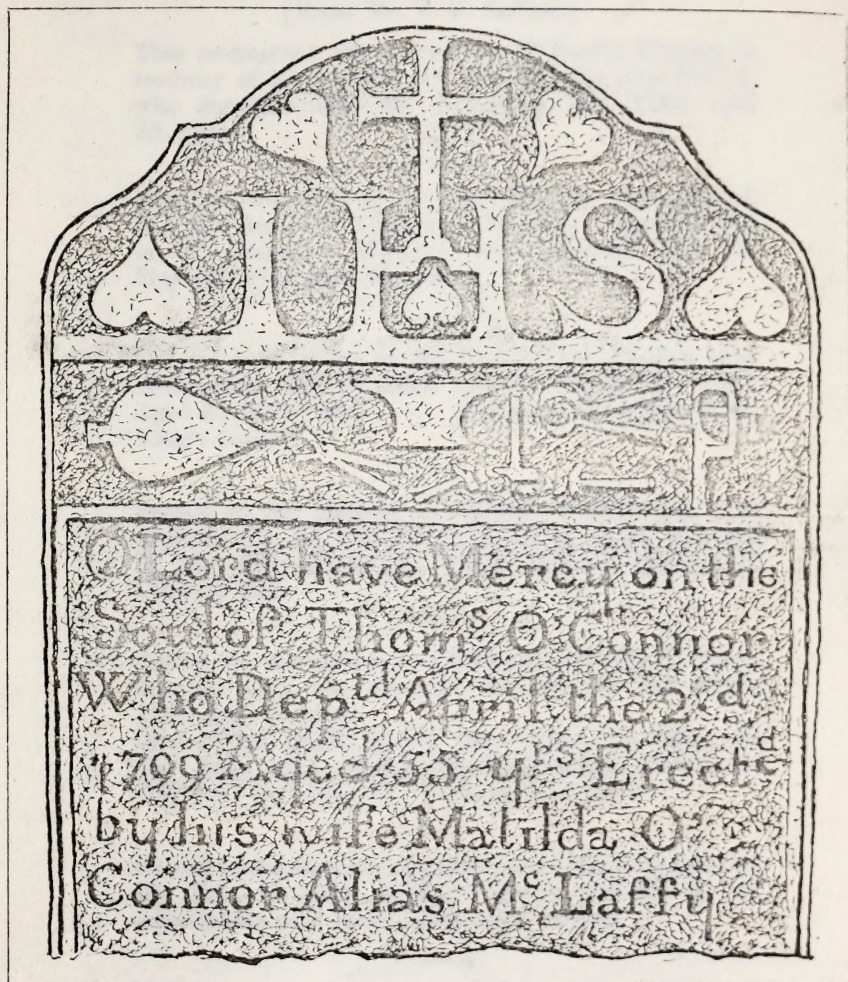 IHS
O Lord have Mercy on the
Soul of Thomˢ O'Connor
Who Depᵗᵈ April the 2.ᵈ
1709 Aged 55 yʳˢ Erectᵉᵈ
by his wife Matilda O'
Connor Alias Mᶜ Laffy